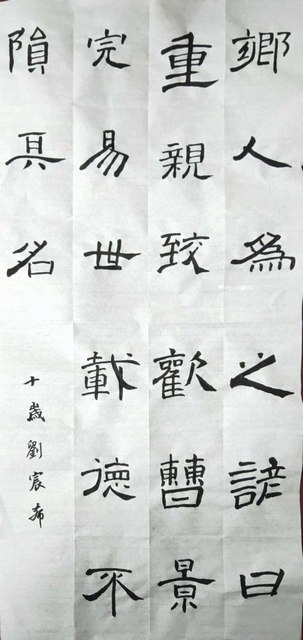 鄉人為之諺曰
重親致歡曹景
完易世載德不
隕其名
十歲劉宸希